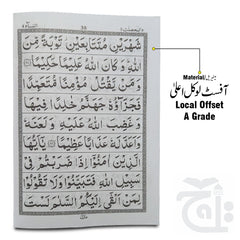 شَهْرَيْنِ مُتَتَابِعَيْنِ تَوْبَةً مِّنَ
اللّٰهِ وَكَانَ اللّٰهُ عَلِيْمًا حَكِيْمًا
وَمَنْ يَّقْتُلْ مُؤْمِنًا مُّتَعَمِّدًا
فَجَزَآؤُهٗ جَهَنَّمُ خٰلِدًا فِيْهَا
وَغَضِبَ اللّٰهُ عَلَيْهِ وَلَعَنَهٗ
وَاَعَدَّ لَهٗ عَذَابًا عَظِيْمًا يٰٓاَيُّهَا
الَّذِيْنَ اٰمَنُوْٓا اِذَا ضَرَبْتُمْ فِيْ
سَبِيْلِ اللّٰهِ فَتَبَيَّنُوْا وَلَا تَقُوْلُوْا
لِمَنْ اَلْقٰٓى اِلَيْكُمُ السَّلٰمَ لَسْتَ
Material
آفسٹ لوکل اعلیٰ
Local Offset
A Grade